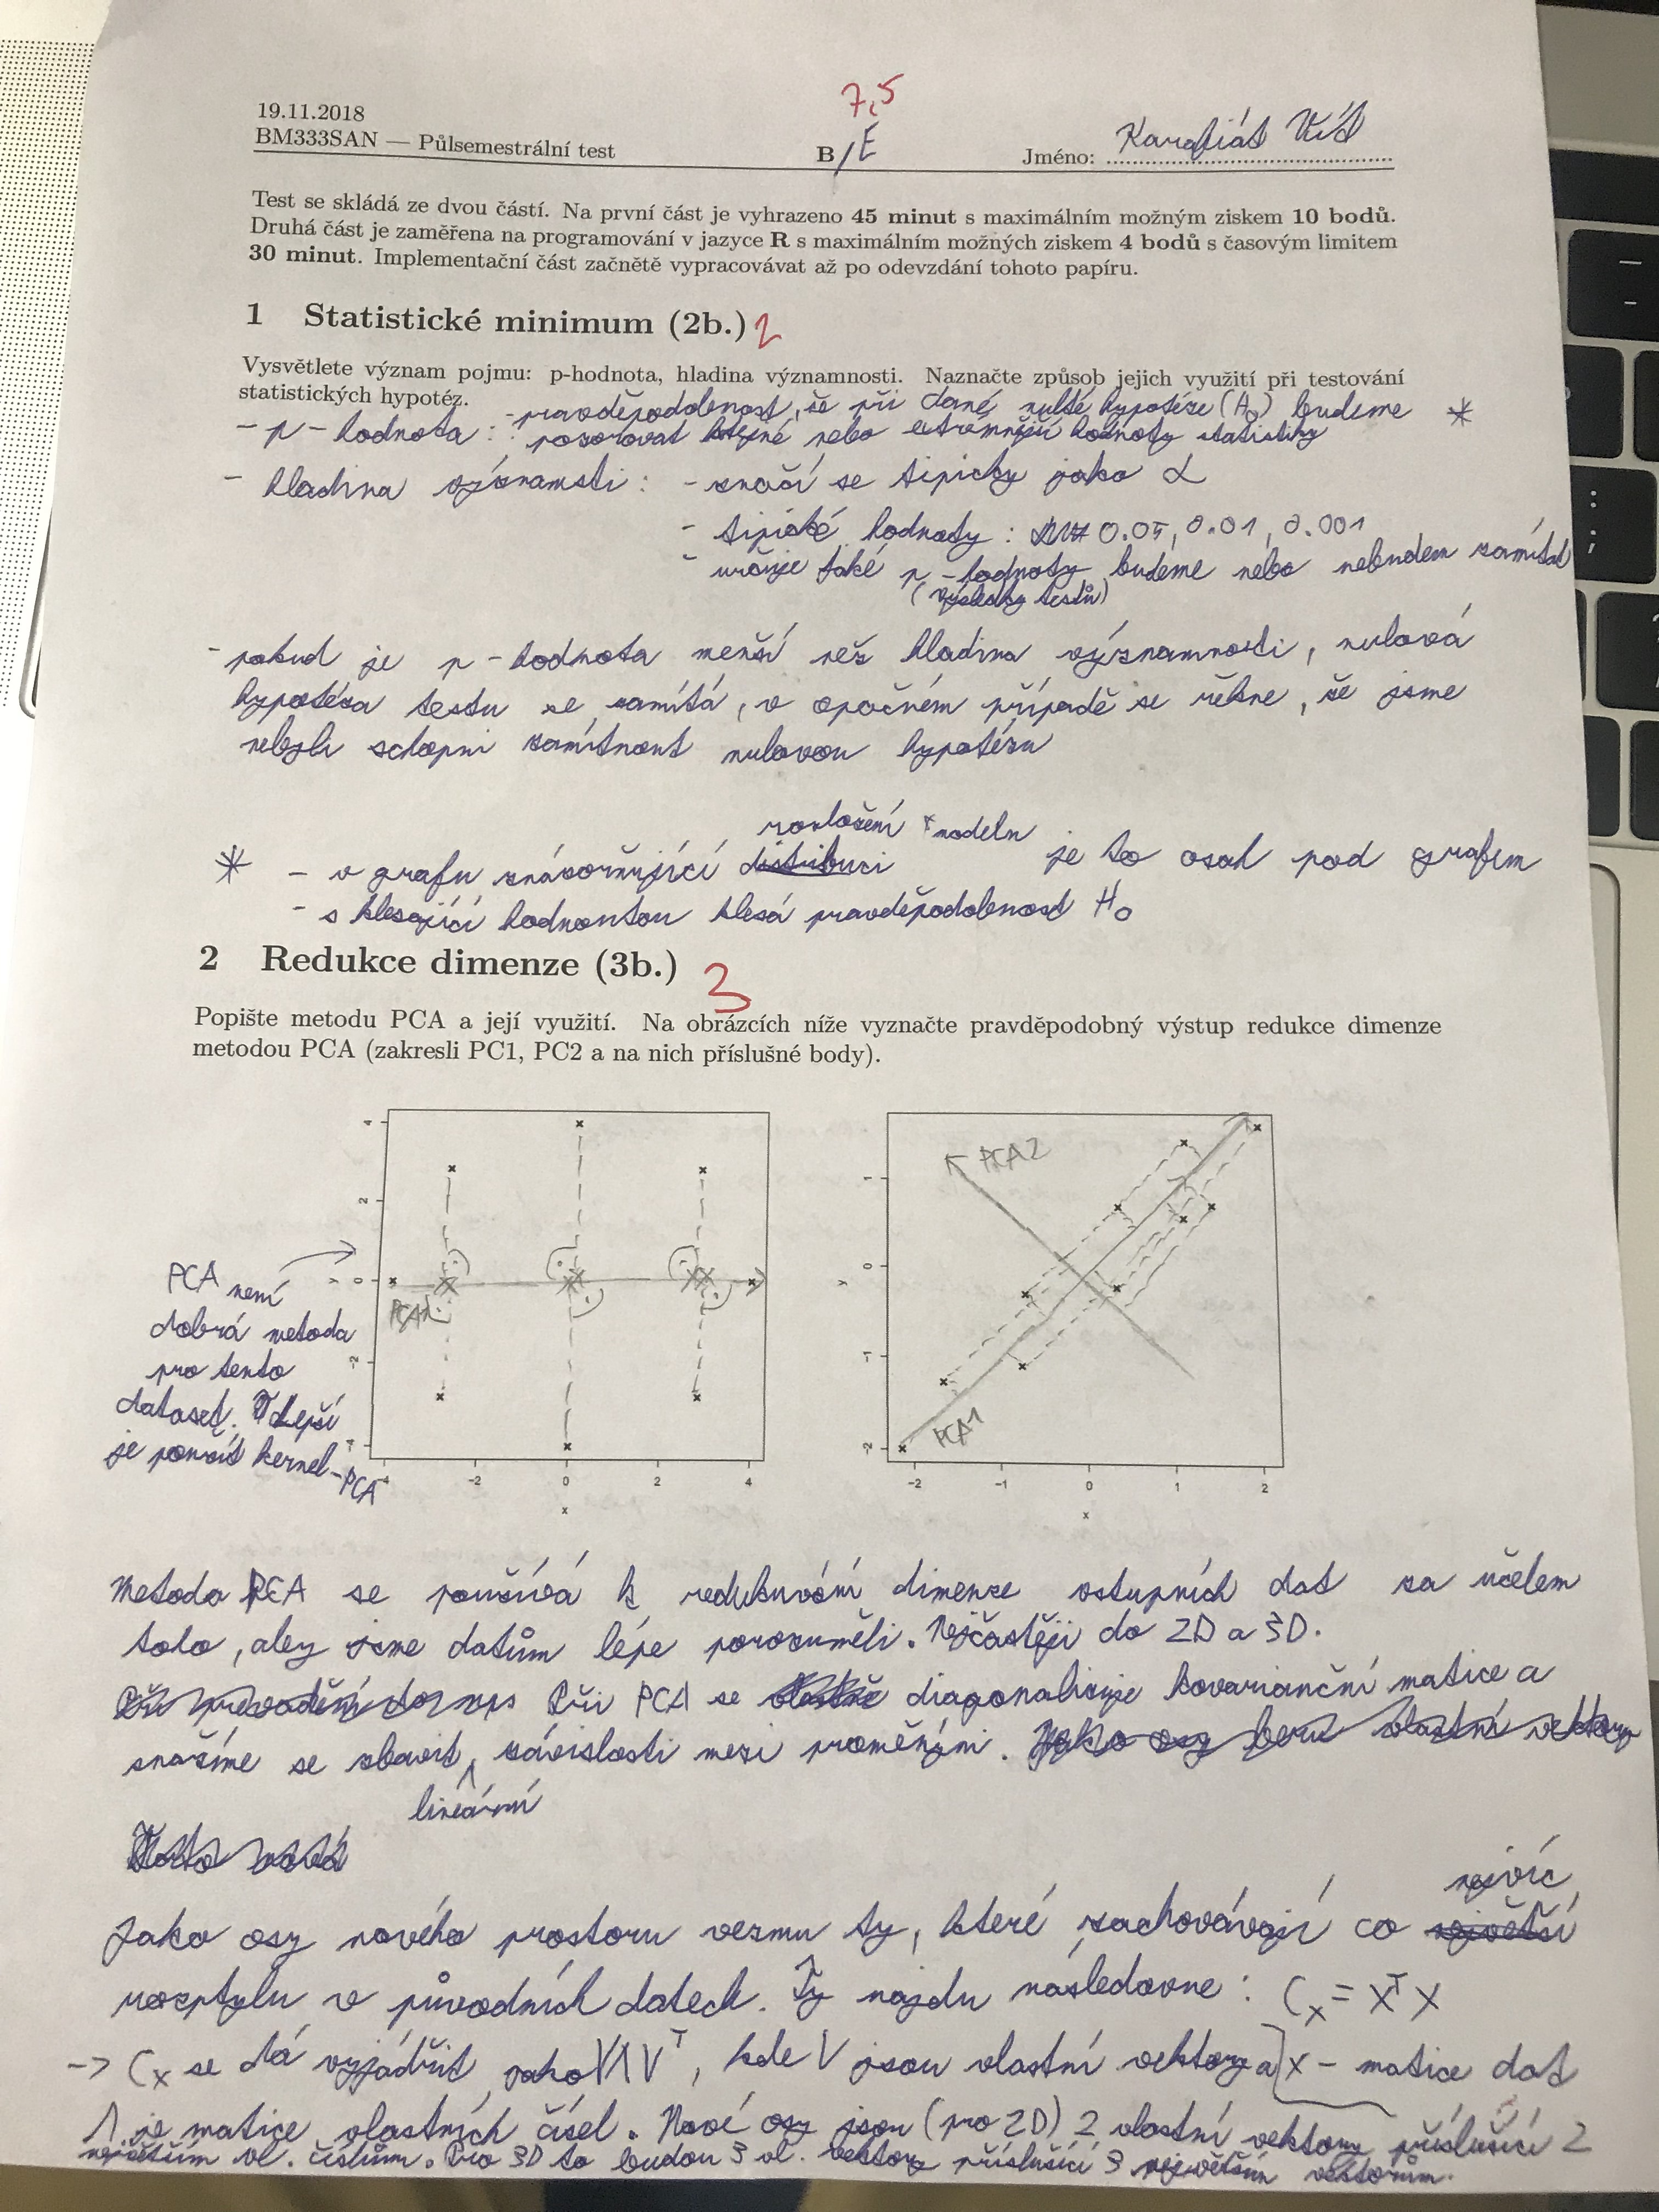 7,5
19.11.2018
BM333SAN — Půlsemestrální test B/E Jméno: Karafiát Vít
Test se skládá ze dvou částí. Na první část je vyhrazeno 45 minut s maximálním možným ziskem 10 bodů.
Druhá část je zaměřena na programování v jazyce R s maximálním možných ziskem 4 bodů s časovým limitem
30 minut. Implementační část začnětě vypracovávat až po odevzdání tohoto papíru.
1 Statistické minimum (2b.) 2
Vysvětlete význam pojmu: p-hodnota, hladina významnosti. Naznačte způsob jejich využití při testování
statistických hypotéz.
- p-hodnota: - pravděpodobnost, že při dané nulté hypotéze (H0) budeme *
pozorovat stejné nebo extrémnější hodnoty statistiky
- hladina významsti: - značí se tipicky jako α
- tipické hodnoty: 0.05, 0.01, 0.001
- určuje jaké p-hodnoty budeme nebo nebudem zamítat
(výsledky testů)
- pokud je p-hodnota menší než hladina významnosti, nulová
hypotéza testu se zamítá, v opačném případě se řekne, že jsme
nebyli schopni zamítnout nulovou hypotézu
rozložení modelu
* - v grafu znázorňující distribuci je to osah pod grafem
- s klesající hodnontou klesá pravděpodobnost H0
2 Redukce dimenze (3b.) 3
Popište metodu PCA a její využití. Na obrázcích níže vyznačte pravděpodobný výstup redukce dimenze
metodou PCA (zakresli PC1, PC2 a na nich příslušné body).
PCA není
dobrá metoda
pro tento
dataset. Lepší
je použít kernel-PCA
4
2
y 0
-2
-4
-4 -2 0 2 4
x
PCA1
PCA2
1
y 0
-1
-2
-2 -1 0 1 2
x
PCA1
Metoda PCA se používá k redukování dimenze vstupních dat za účelem
toho, aby jsme datům lépe porozuměli. Nejčastěji do 2D a 3D.
Při PCA se diagonalizuje kovarianční matice a
snažíme se zbavit závislosti mezi proměnými. Jako osy beru vlastní vektory
lineární
nejvíc
Jako osy nového prostoru vezmu ty, které zachovávají co největší
rozptylu v původních datech. Ty najdu následovne: Cx = XᵀX
-> Cx se dá vyjádřit jako VΛVᵀ, kde V jsou vlastní vektory a X - matice dat
Λ je matice vlastních čísel. Nové osy jsou (pro 2D) 2 vlastní vektory příslušící 2
největším vl. číslům. Pro 3D to budou 3 vl. vektory příslušící 3 největším vektorům.